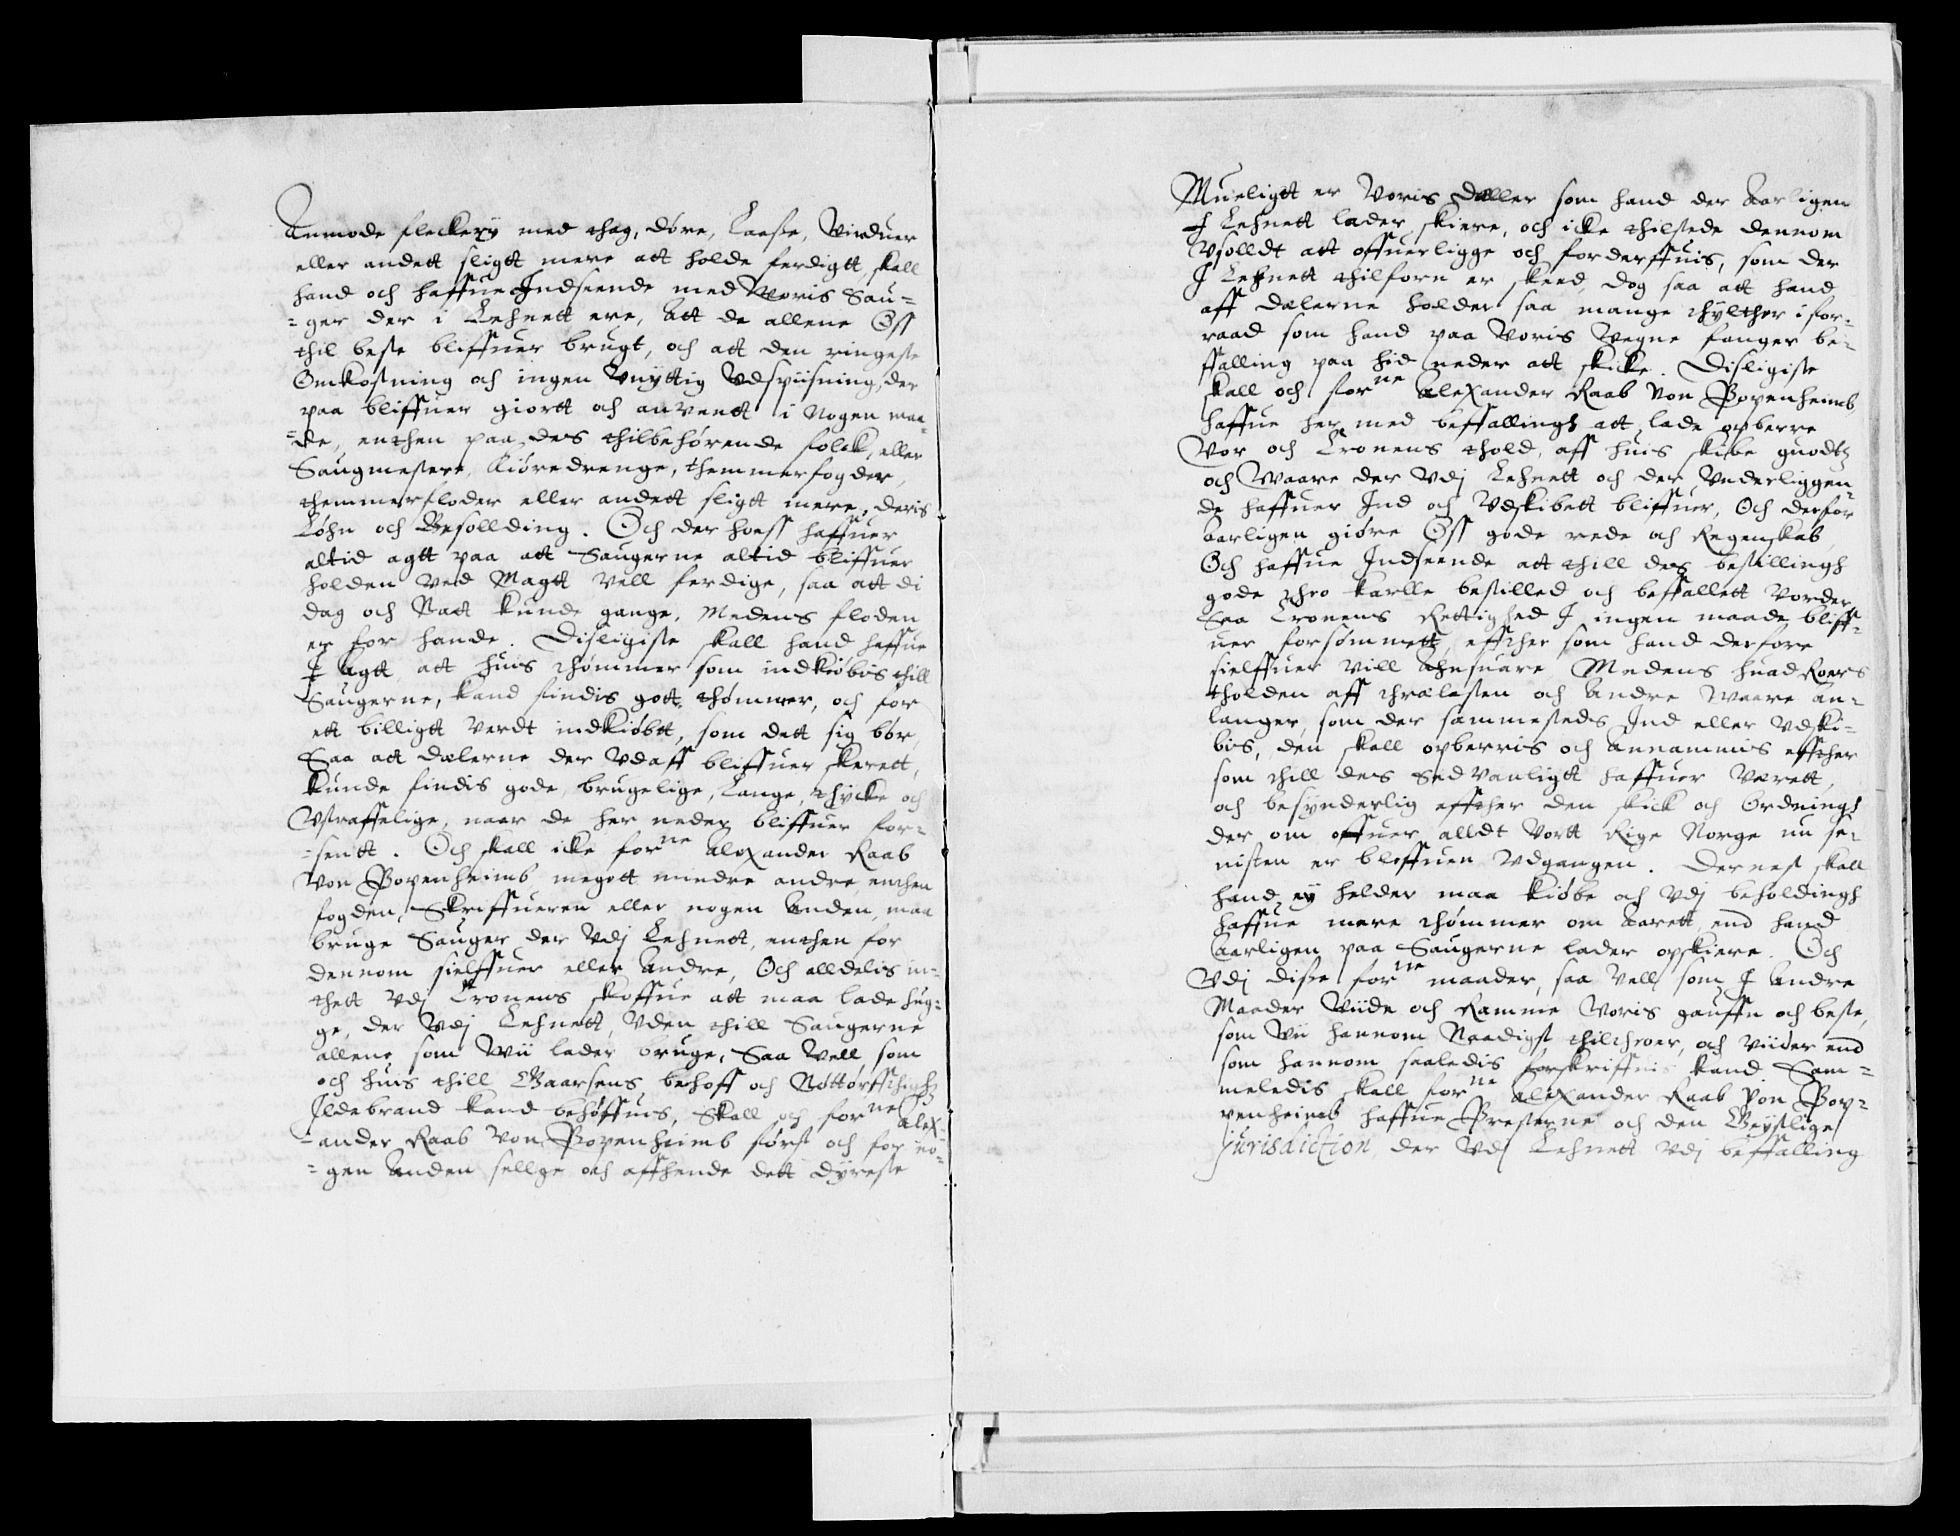 Anmode fleckerÿ med thag, døre, Laaße, Vinduer
eller andett sligtt mere att holde ferdigtt, skall
hand och haffue Indseende med Woris Sau=
=ger der i Lehnett ere, Att de allene Oss
thil beste bliffuer brugt, och att den ringeste
Omkostning och ingen Vnÿttig Vdspiisning, der
paa bliffuer giortt och anvendt i Nogen maa=
=de, enthen paa des thilbehørende folck, eller
Saugmestere, Kiøredrenge, themmerfogder,
themmerfloder eller andett sligtt mere, deris
Løhn och Besollding. Och der hoess haffuer
altid agtt paa att Saugerne altid bliffuer
holden Ved Magtt Vell ferdige, saa att di
dag och Natt kunde gange, Medens floden
er for hande. Disligiste skall hand haffue
I agtt, att huis thømmer som indkiøbis thill
Saugerne, kand findis gott thømmer, och for
ett billigtt Verdt indkiøbtt, som dett sig bør,
Saa att dælerne der Vdaff bliffuer skerett,
kunde findis gode, brugelige, Lange, thÿcke och
Vstraffelige, naar de her neder bliffuer for=
=sentt. Och skall icke forne Alexander Raab
Von Popenheimb, megett mindre andre, enthen
fogden, Skriffueren eller nogen Anden, maa
bruge Sauger der Vdj Lehnett, enthen for
dennom sielffuer eller Andre, Och alldelis in=
thett Vdj Cronens skoffue att maa lade hug=
ge, der Vdj Lehnett, Vden thill Saugerne
allene, som Wii lader bruge, Saa Vell som
och huis thill Gaarsens behoff och Nøttørfftighed
Ildebrand kand behøffuis, Skall och forne Alex=
=ander Raab Von Popenheimb først och for no=
=gen Anden sellge och affhende dett dÿreste
Mueligtt er Voris Dæller som hand der Aarligen
I Lehnett lader skiere, och icke thilstede dennom
Vsolldt att offuerligge och forderffuis, som der
I Lehnett thilforn er skeed, dog saa att hand
aff dælerne holder saa mange thÿlther i for=
raad som hand paa Voris Vegne fanger be=
ffalling paa hid neder att skicke. Disligiste
skall och forne Alexander Raab Von Popenheimb
haffue her med beffallingh att lade opberre
Vor och Cronens thold, aff huis skibe guodtz
och Waare der Vdj Lehnett och der Vnderliggen=
de haffuer Ind och Vdskibett bliffuer, Och derfor
Aarligen giøre Oss gode rede och Regenskab,
Och haffue Indseende att thill des bestillingh
gode thro karlle bestilled och beffallett Vorder,
Saa Cronens Rettighed I ingen maade bliff=
uer forsømmett, effther som hand derfore
sielffuer Vill Ahnsuare, Medens huad Roers
tholden aff thrælasten och Andre Waare An=
langer, som der sammesteds Ind eller Vdski=
bis, den skall opberris och Annammis effther
som thill des sedvanligtt haffuer Værett,
och besÿnderlig effther den skick och Ordningh
der om offuer alldt Vortt Rige Norge nu se=
nisten er bleffuen Vdgangen. Dernest skall
hand eÿ helder maa kiøbe och Vdj beholdingh
haffue mere thømmer om Aarett, end hand
Aarligen paa Saugerne lader opskiere. Och
Vdj diße forne maader, saa Vell som I Andre
Maader Viide och Ramme Woris gauffn och beste,
som Vii hannom Naadigst thiltheoer, och viider end
som hannom saaledis forskriffuis kand Sam=
meledis skall forne Alexander Raab Von Pop=
penheimb haffue Presterne och den Geÿstlige
Jurisdiction, der Vdj Lehnett Vdj beffalling